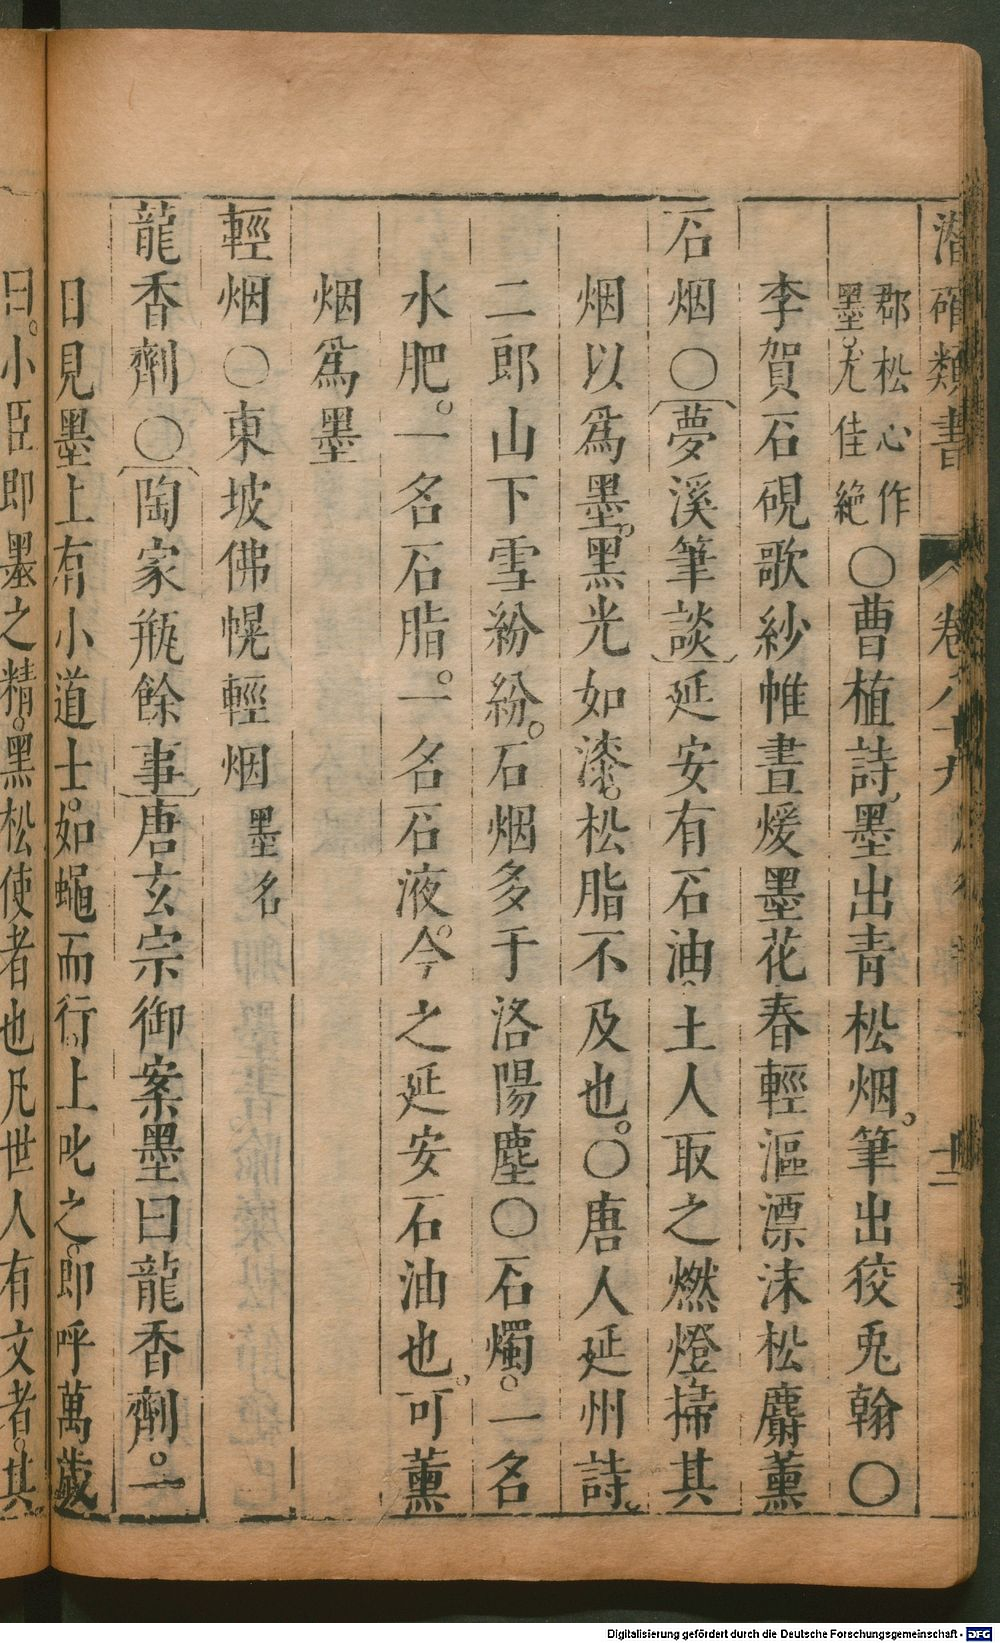 潛確類書 卷八十九 十二
郡松心作
墨尤佳絶
〇曹植詩墨出青松烟。筆出狡兎翰〇
李賀石硯歌紗帷晝煖墨花春輕漚漂沫松麝薰
石烟〇夢溪筆談延安有石油。土人取之燃燈掃其
烟以爲墨。黑光如漆。松脂不及也。〇唐人延州詩。
二郎山下雪紛紛。石烟多于洛陽塵〇石燭。一名
水肥。一名石脂。一名石液。今之延安石油也。可薰
烟爲墨
輕烟〇東坡佛幌輕烟墨名
龍香劑〇陶家瓶餘事唐玄宗御案墨曰龍香劑。一
日見墨上有小道士。如蠅而行。上叱之。即呼萬歲
曰。小臣即墨之精。黑松使者也凡世人有文者。其
Digitalisierung gefördert durch die Deutsche Forschungsgemeinschaft - DFG